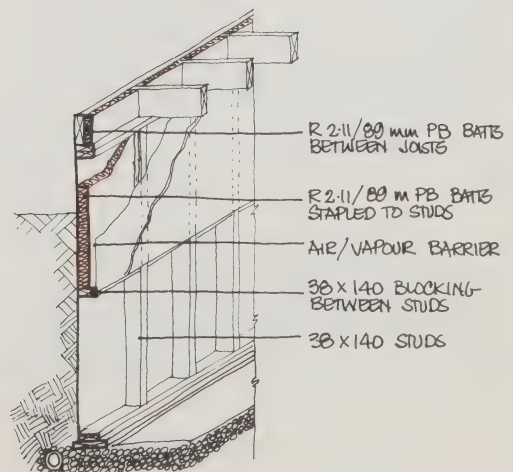 R 2·11/89 mm PB BATTS
BETWEEN JOISTS
R 2·11/89 m PB BATTS
STAPLED TO STUDS
AIR/VAPOUR BARRIER
38 × 140 BLOCKING
BETWEEN STUDS
38 × 140 STUDS